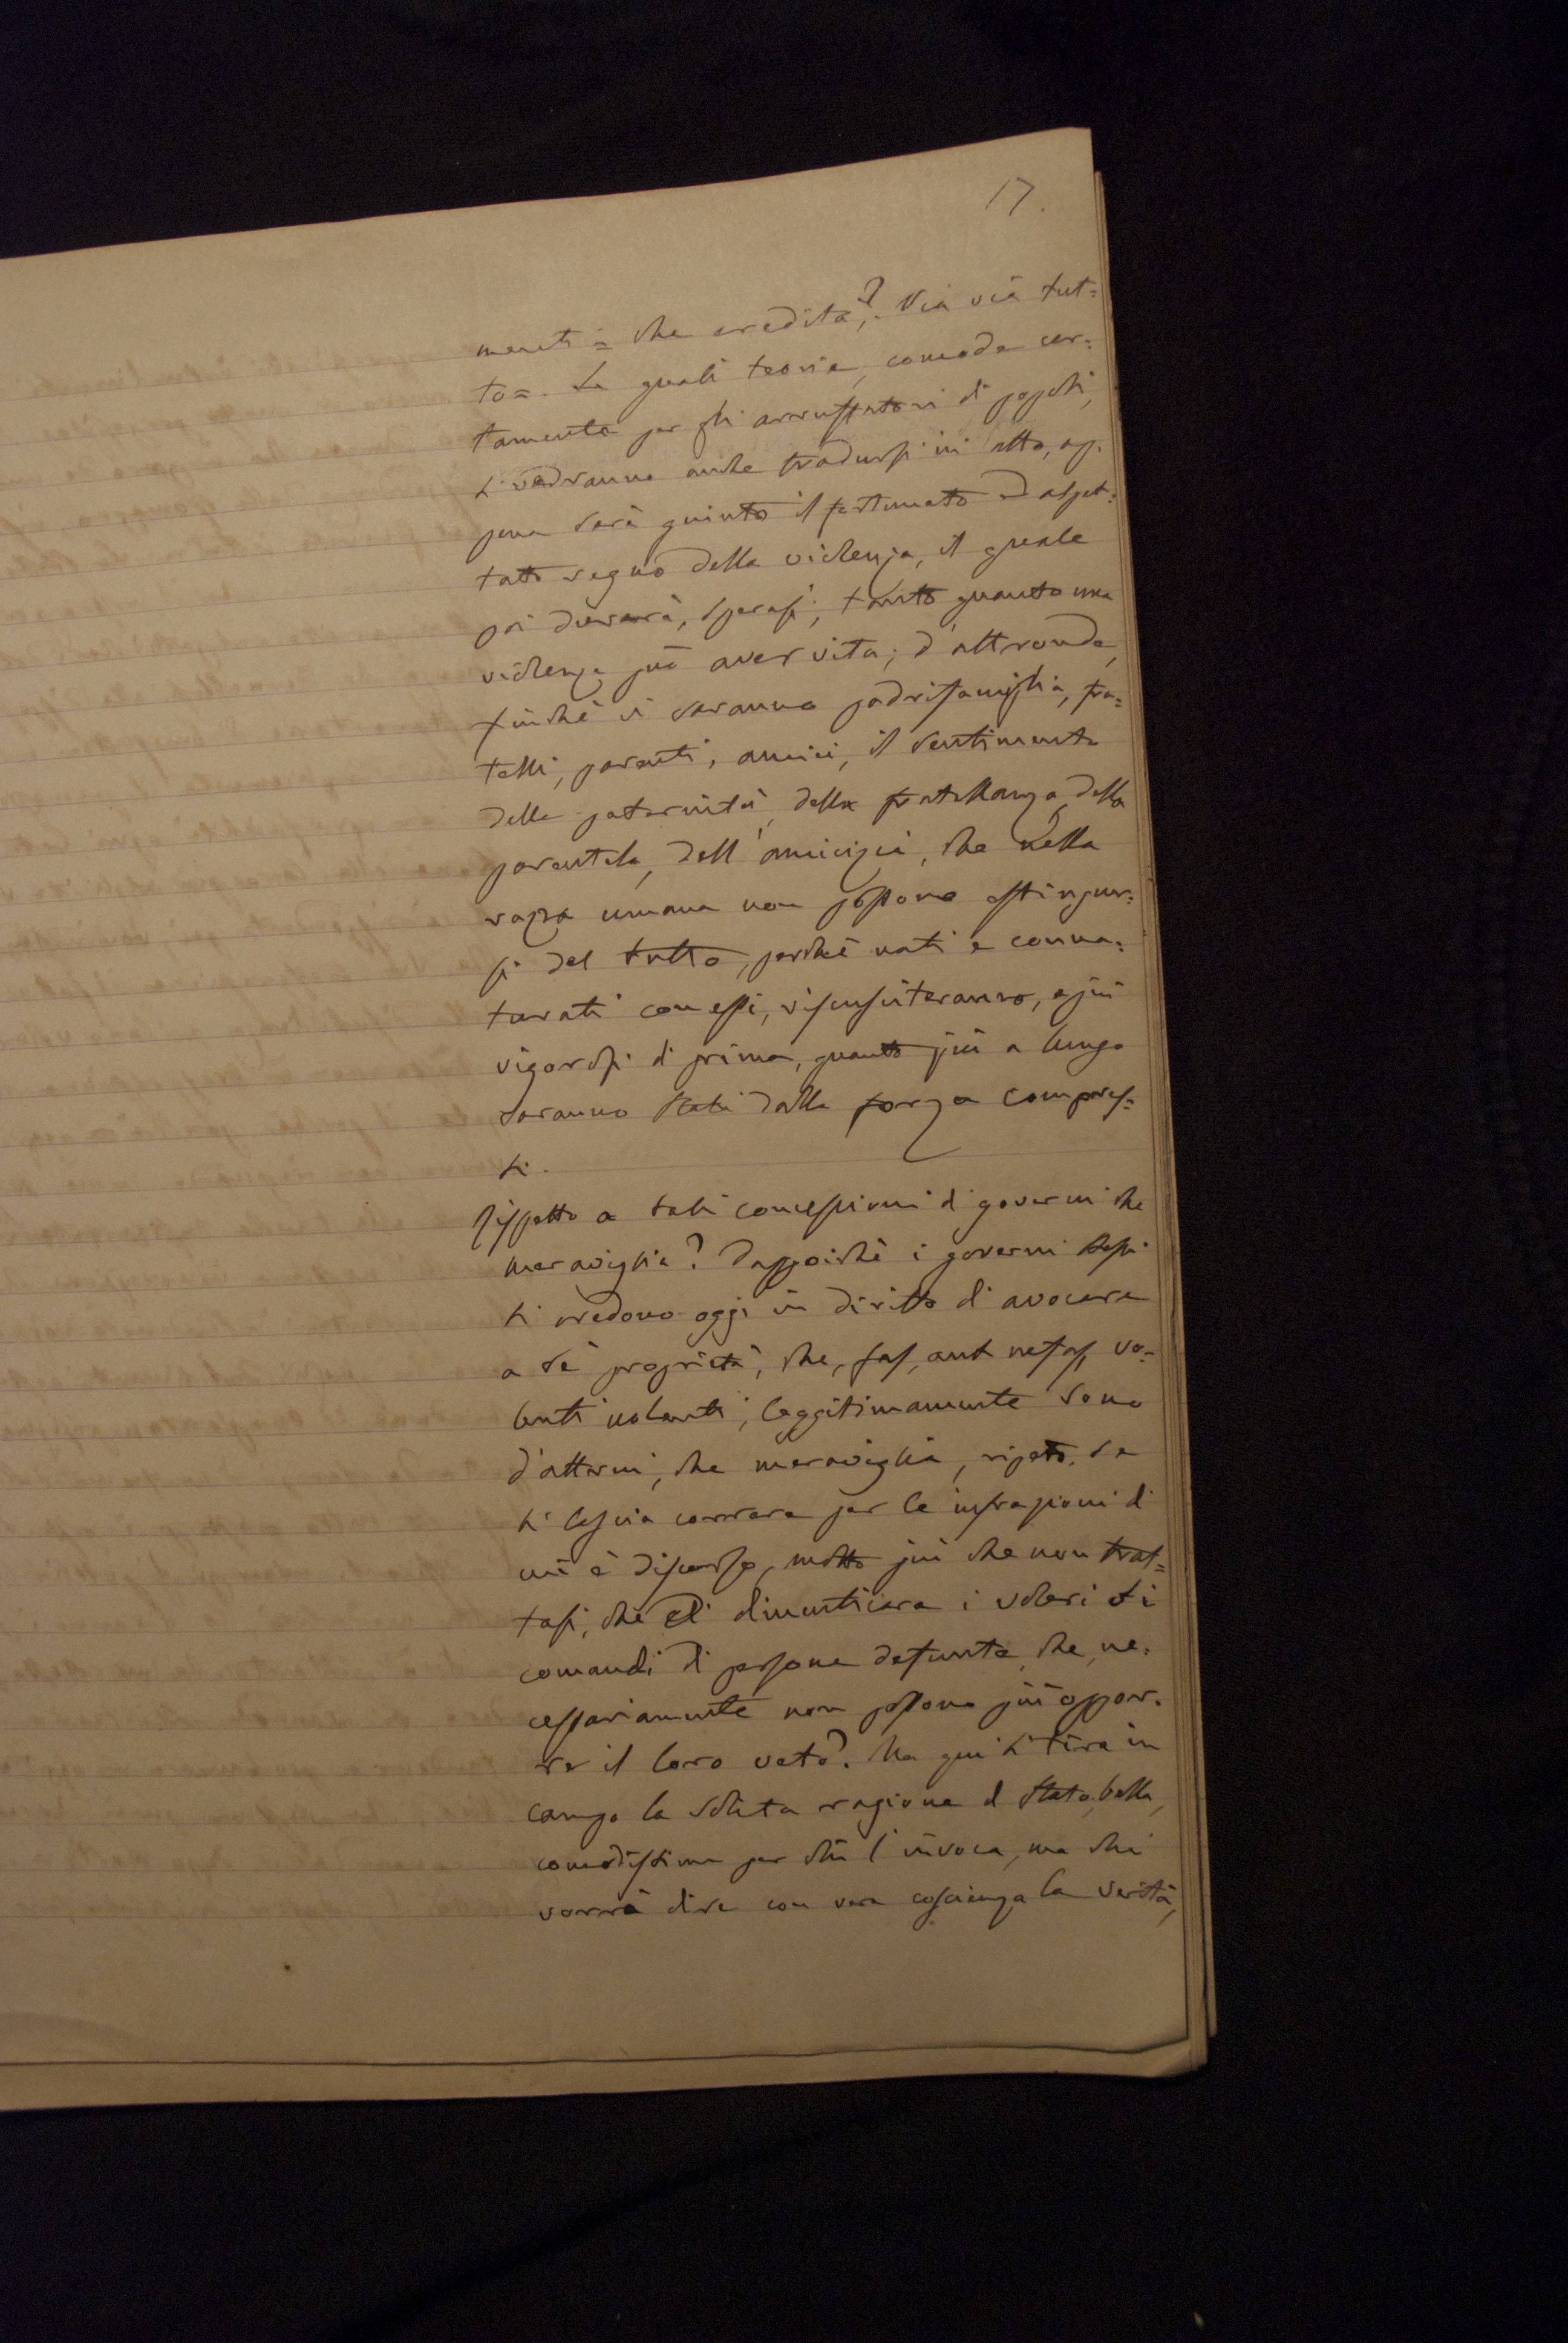 17.
menti = che eredità?. Via via tut=
to=. Le quali teorie, comode cer=
tamente per gli arruffatori di popoli,
si vedranno anche tradursi in atto, ap=
pena sarà giunto il fortunato ed aspet=
tato regno della violenza, il quale
poi durerà, sperasi, tanto quanto una
violenza può aver vita; d'altronde,
finchè vi saranno padrifamiglia, fra=
telli, parenti, amici, il sentimento
della paternità, della fratellanza, della
parentela, dell'amicizia, che nella
razza umana non possono estinguer=
si del tutto, perchè nati e conna=
turati con essi, risusciteranno, e più
vigorosi di prima, quanto più a lungo
saranno stati dalla forza compres=
si.
Rispetto a tali concessioni di governi che
meraviglia? Dappoichè i governi stessi
si credono oggi in diritto di avocare
a sè proprietà, che, fas, aut nefas, vo=
lenti nolenti, leggitimamente sono
d'altrui, che meraviglia, ripeto, se
si lascia correre per le infrazioni di
cui è discorso, molto più che non trat=
tasi, che di dimenticare i voleri ed i
comandi di persone defunte, che, ne=
cessariamente non possono più oppor=
re il loro veto? Ma qui si tira in
campo la solita ragione di Stato, bella,
comodissima per chi l'invoca, ma chi
vorrà dire con vera coscienza la verità,